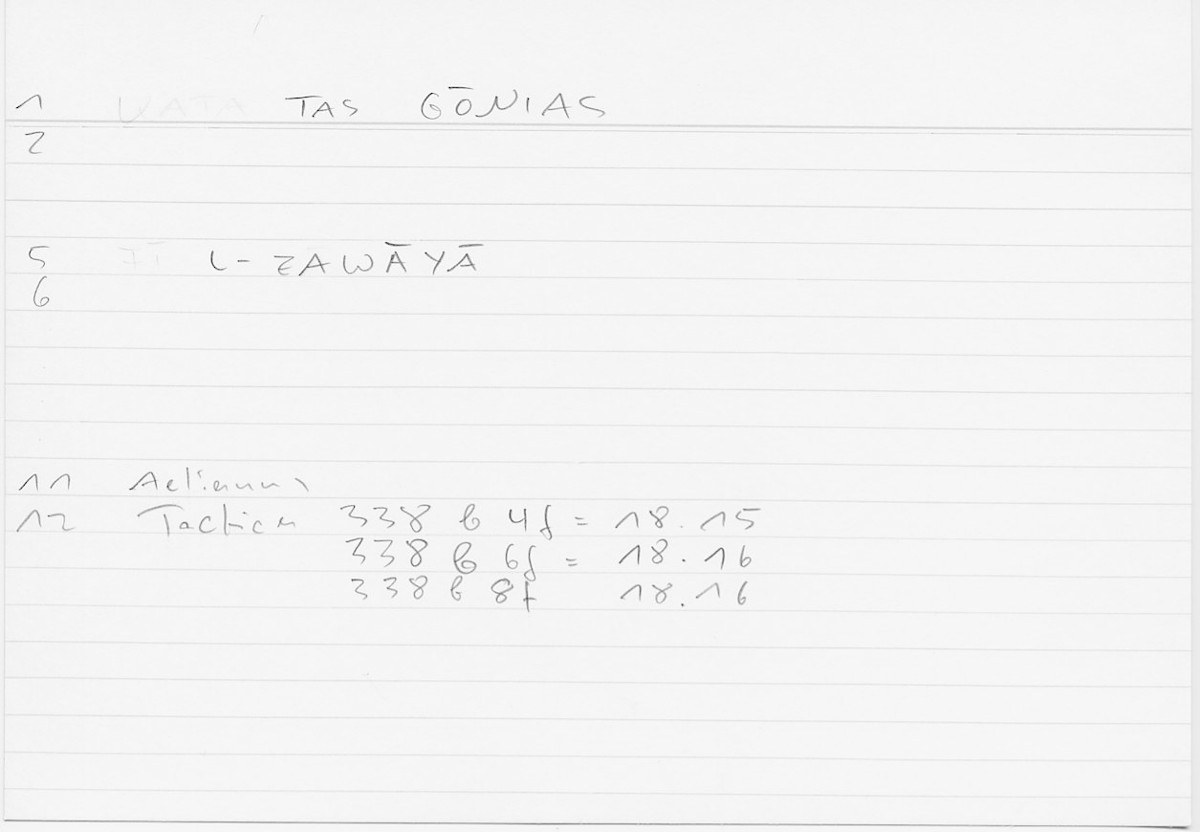 1 KATA TAS GŌNIAS
2
5 FĪ L-ZAWĀYĀ
6
11 Aelianus
12 Tactica 338 b 4f = 18.15
338 b 6f = 18.16
338 b 8f 18.16